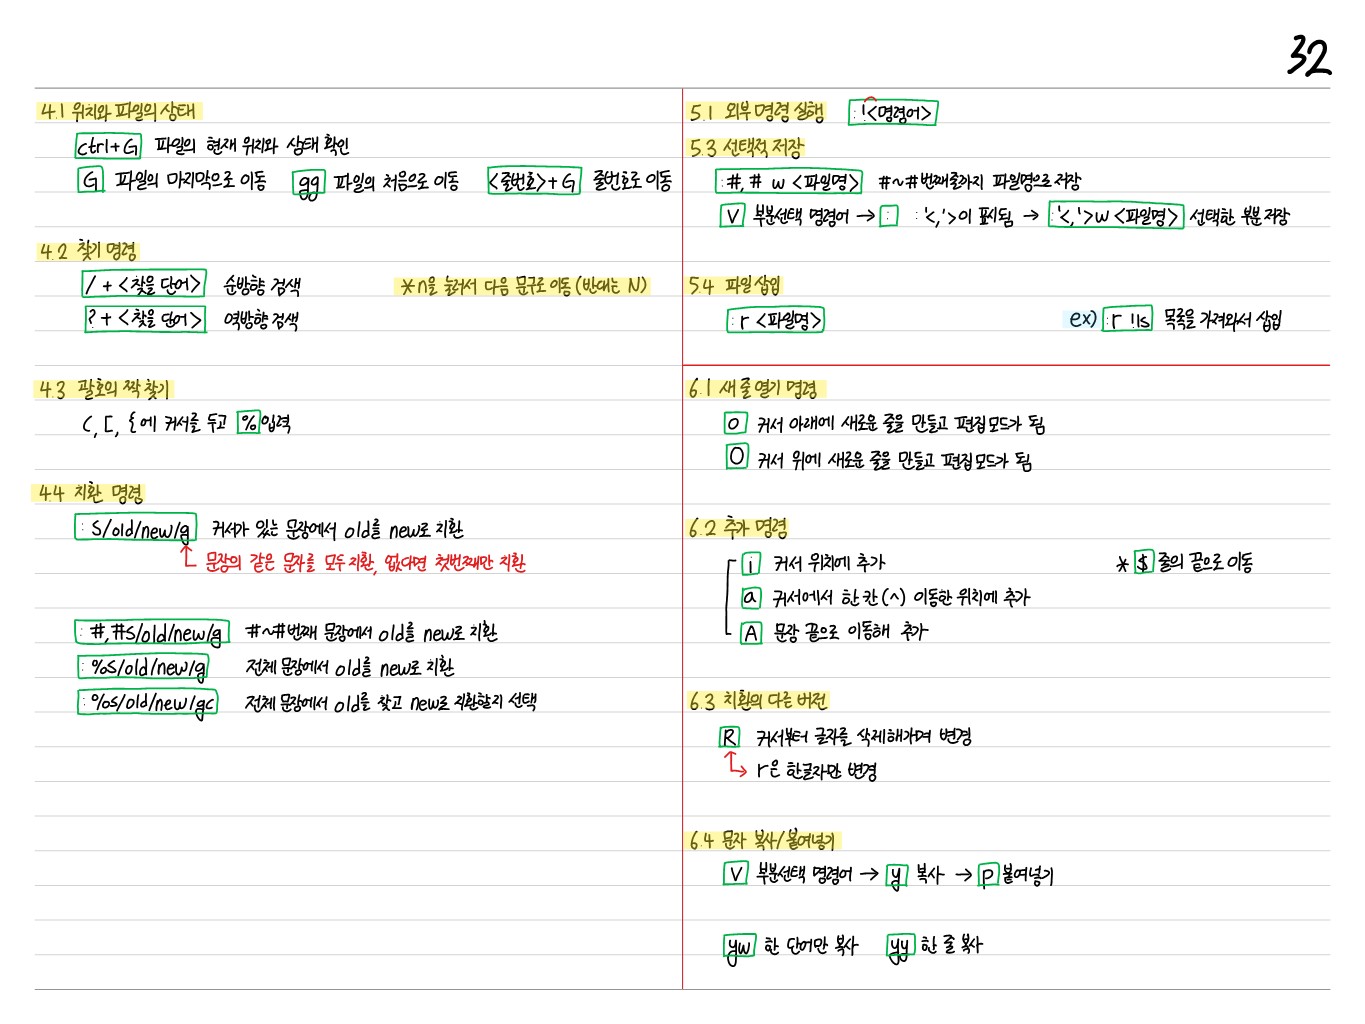 32
4.1 위치와 파일의 상태
ctrl+G 파일의 현재 위치와 상태 확인
G 파일의 마지막으로 이동 gg 파일의 처음으로 이동 <줄번호>+G 줄번호로 이동
4.2 찾기 명령
/ + <찾을 단어> 순방향 검색 *n을 눌러서 다음 문구로 이동 (반대는 N)
? + <찾을 단어> 역방향 검색
4.3 괄호의 짝 찾기
(, [, {에 커서를 두고 % 입력
4.4 치환 명령
:S/old/new/g 커서가 있는 문장에서 old를 new로 치환
문장의 같은 문자를 모두 치환, 없다면 첫번째만 치환
:#,#S/old/new/g #~#번째 문장에서 old를 new로 치환
:%S/old/new/g 전체 문장에서 old를 new로 치환
:%S/old/new/gc 전체 문장에서 old를 찾고 new로 치환할지 선택
5.1 외부 명령 실행 :!<명령어>
5.3 선택적 저장
:#,# w <파일명> #~#번째줄까지 파일명으로 저장
V 부분선택 명령어 → : :'<,'>이 표시됨 → :'<,'>w <파일명> 선택한 부분 저장
5.4 파일 삽입
:r <파일명> ex) :r !ls 목록을 가져와서 삽입
6.1 새 줄 열기 명령
o 커서 아래에 새로운 줄을 만들고 편집모드가 됨
O 커서 위에 새로운 줄을 만들고 편집모드가 됨
6.2 추가 명령
i 커서 위치에 추가 * $ 줄의 끝으로 이동
a 커서에서 한 칸(^) 이동한 위치에 추가
A 문장 끝으로 이동해 추가
6.3 치환의 다른 버전
R 커서부터 글자를 삭제해가며 변경
r은 한글자만 변경
6.4 문자 복사/붙여넣기
V 부분선택 명령어 → y 복사 → p 붙여넣기
yw 한 단어만 복사 yy 한 줄 복사